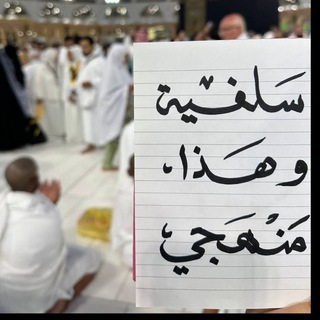 سَلفية
وهَذا،
مَنْهَجي